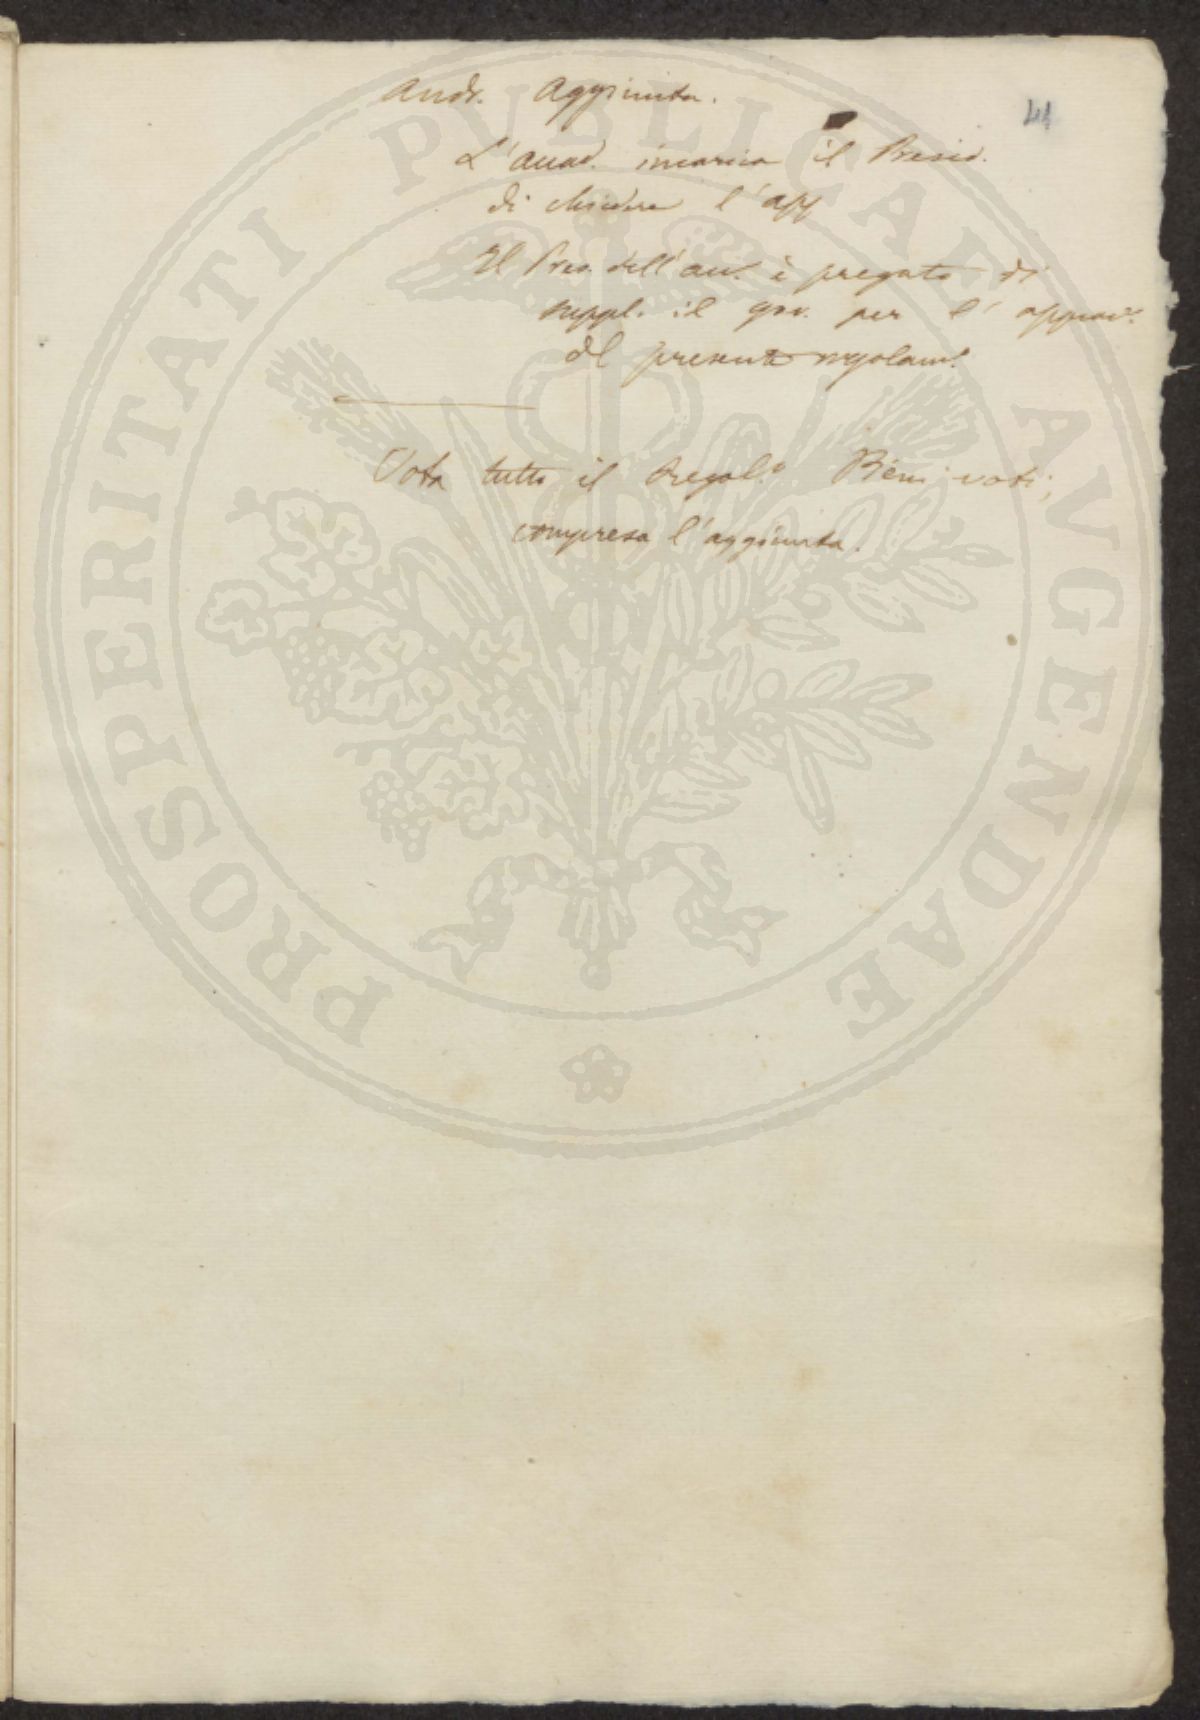 Andr. Aggiunta.
41
L'accad. incarica il Presid.
di chiedere l'app
Il Pres. dell'acc. è pregato di
suppl. il gov. per l'approv.e
del presente regolam.o
Vota tutto il Regol.o Pieni voti;
compresa l'aggiunta.
PROSPERITATI PUBLICAE AVGENDAE